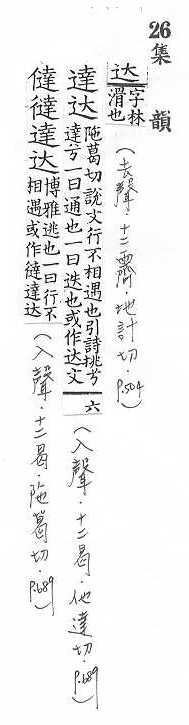 26 集韻
达 字林滑也 (去聲．十二霽．地計切．P.504)
達达 陁葛切說文行不相遇也引詩挑兮達兮一曰通也一曰迭也或作达文六 (入聲．十二曷．他達切．P.689)
㒓㣵達达 博雅逃也一曰行不相遇或作㣵達达 (入聲．十二曷．陁葛切．P.689)